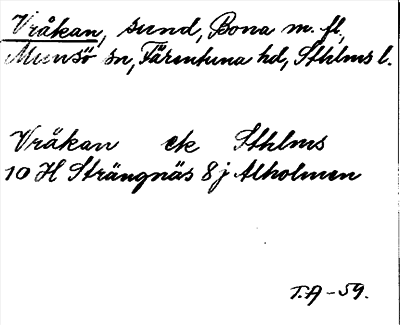 Vråkan, sund, Bona m. fl,
Munsö sn, Färentuna hd, Sthlms l.
Vråkan ek Sthlms
10 H Strängnäs 8 j Alholmen
T.A-59.